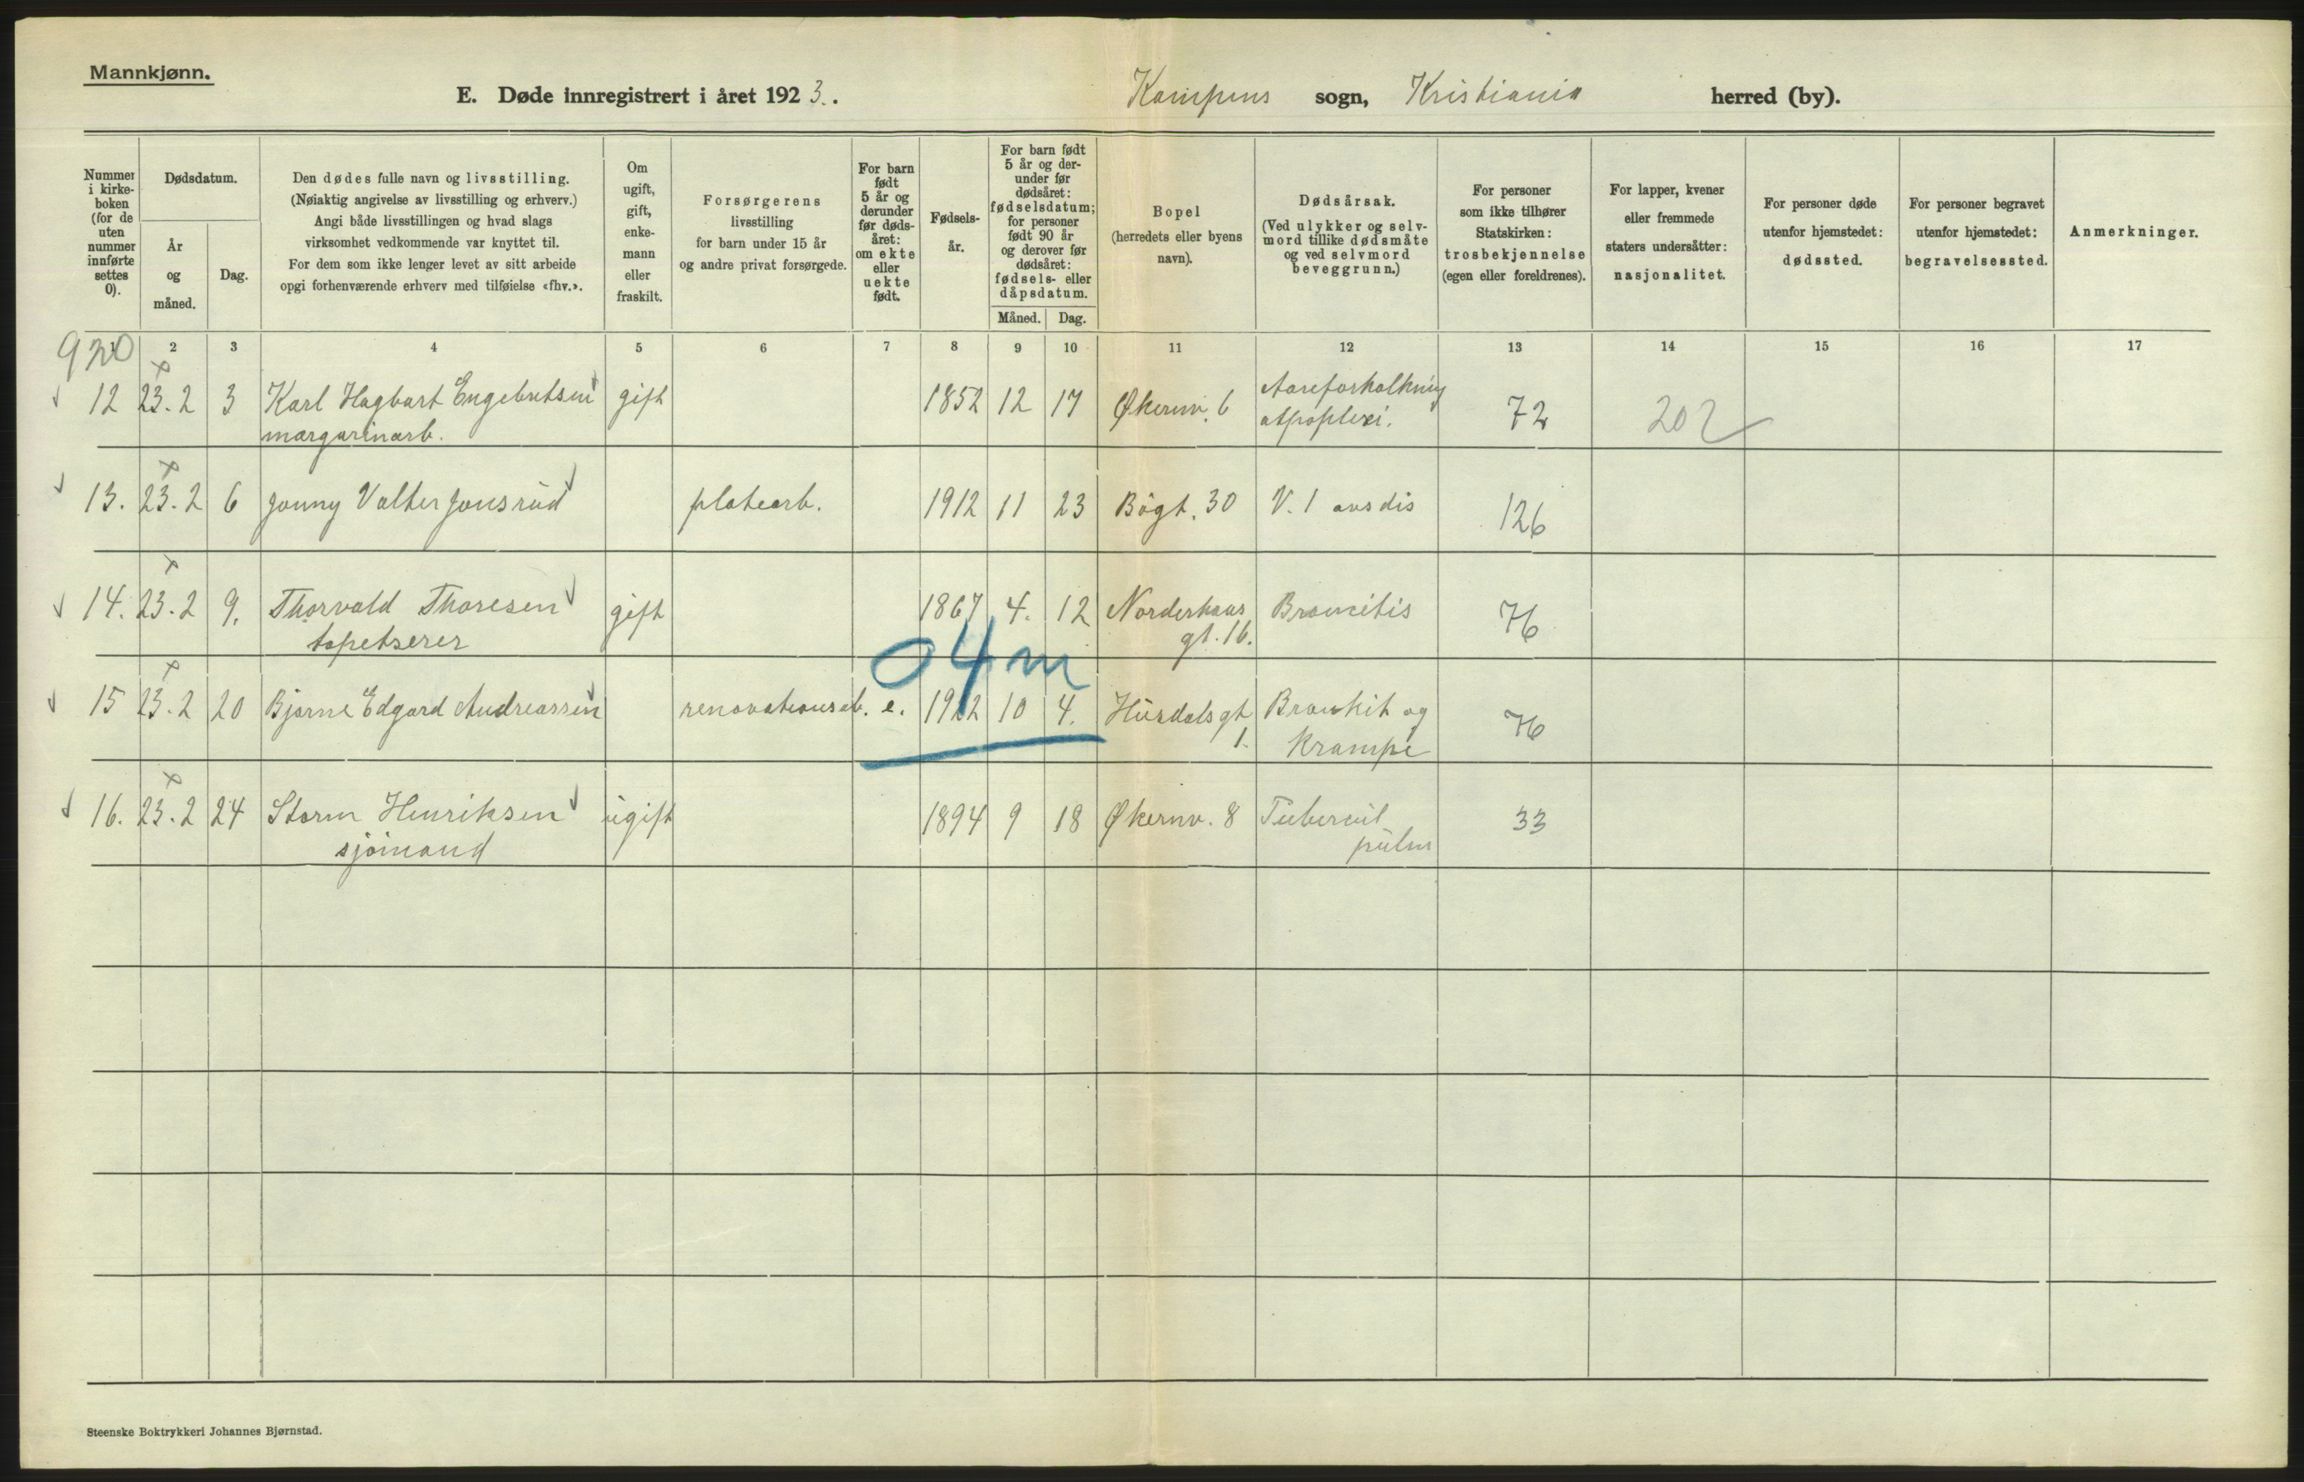 Mannkjønn.
E. Døde innregistrert i året 1923. Kampens sogn, Kristiania herred (by).
Nummer i kirkeboken (for de uten nummer innførte settes 0).
Dødsdatum.
År og måned.
Dag.
Den dødes fulle navn og livsstilling.
(Nøiaktig angivelse av livsstilling og erhverv.)
Angi både livsstillingen og hvad slags
virksomhet vedkommende var knyttet til.
For dem som ikke lenger levet av sitt arbeide
opgi forhenværende erhverv med tilføielse «fhv.».
Om ugift, gift, enkemann eller fraskilt.
Forsørgerens
livsstilling
for barn under 15 år
og andre privat forsørgede.
For barn født 5 år og derunder før dødsåret: om ekte eller uekte født.
Fødselsår.
For barn født 5 år og derunder før dødsåret: fødselsdatum; for personer født 90 år og derover før dødsåret: fødsels- eller dåpsdatum.
Måned. Dag.
Bopel
(herredets eller byens
navn).
Dødsårsak.
(Ved ulykker og selvmord tillike dødsmåte og ved selvmord beveggrunn.)
For personer
som ikke tilhører
Statskirken:
trosbekjennelse
(egen eller foreldrenes).
For lapper, kvener
eller fremmede
staters undersåtter:
nasjonalitet.
For personer døde
utenfor hjemstedet:
dødssted.
For personer begravet
utenfor hjemstedet:
begravelsessted.
Anmerkninger.
1 2 3 4 5 6 7 8 9 10 11 12 13 14 15 16 17
920
12 23.2 3 Karl Hagbart Engebretsen gift 1852 12 17 Økernv. 6 Aareforkalkning 72 202
margarinarb. apoplexi.
13. 23.2 6 Jonny Valter Jonsrud platearb. 1912 11 23 Bøgt. 30 V. 1 126
14. 23.2 9. Thorvald Thoresen gift 1867 4. 12 Norderhaus Broncitis 76
tapetserer gt. 16.
04m
15 23.2 20 Bjarne Edgard Andreassen renovationsarb. e. 1922 10 4. Hurdalsgt Bronkit og 76
1. Krampe
16. 23.2 24 Storm Henriksen ugift 1894 9 18 Økernv. 8 Tubercul 33
sjømand pulm
Steenske Boktrykkeri Johannes Bjørnstad.